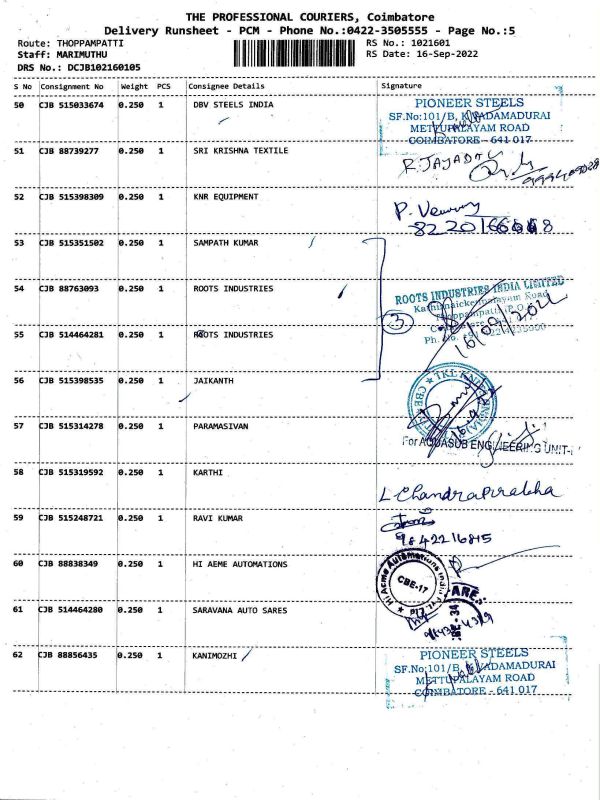 THE PROFESSIONAL COURIERS, Coimbatore
Delivery Runsheet - PCM - Phone No.:0422-3505555 - Page No.:5
Route: THOPPAMPATTI RS No.: 1021601
Staff: MARIMUTHU RS Date: 16-Sep-2022
DRS No.: DCJB102160105
S No Consignment No Weight PCS Consignee Details Signature
50 CJB 515033674 0.250 1 DBV STEELS INDIA
PIONEER STEELS
SF.No:101/B, KADAMADURAI
METTUPALAYAM ROAD
COIMBATORE - 641 017
51 CJB 88739277 0.250 1 SRI KRISHNA TEXTILE
52 CJB 515398309 0.250 1 KNR EQUIPMENT
53 CJB 515351502 0.250 1 SAMPATH KUMAR
54 CJB 88763093 0.250 1 ROOTS INDUSTRIES
ROOTS INDUSTRIES INDIA LIMITED
3
16/09/2022
55 CJB 514464281 0.250 1 ROOTS INDUSTRIES
56 CJB 515398535 0.250 1 JAIKANTH
57 CJB 515314278 0.250 1 PARAMASIVAN
For AQUASUB ENGINEERING UNIT-I
58 CJB 515319592 0.250 1 KARTHI
L Chandraprabha
59 CJB 515248721 0.250 1 RAVI KUMAR
9842216815
60 CJB 88838349 0.250 1 HI AEME AUTOMATIONS
Hi Acme Automations India Pvt. Ltd
CBE-17
61 CJB 514464280 0.250 1 SARAVANA AUTO SARES
62 CJB 88856435 0.250 1 KANIMOZHI
PIONEER STEELS
SF.No:101/B, KADAMADURAI
METTUPALAYAM ROAD
COIMBATORE - 641 017